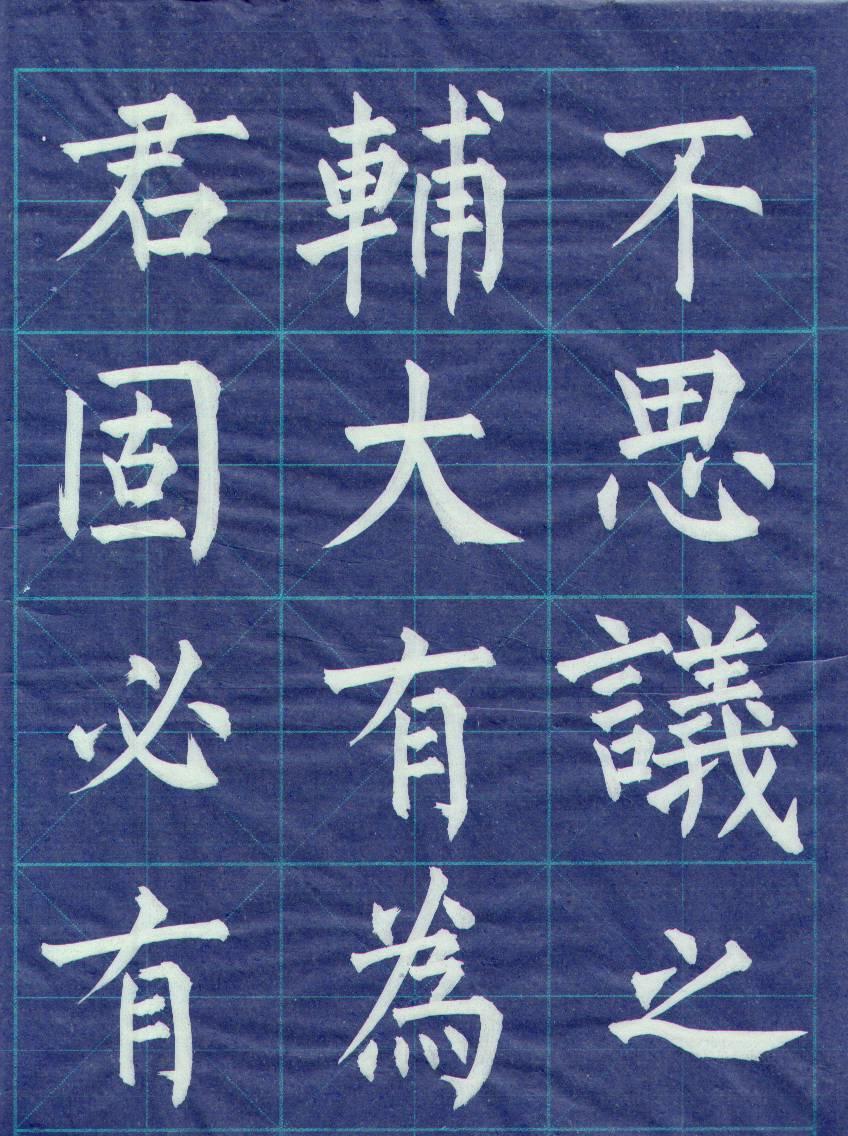 不思議之
輔大有為
君固必有